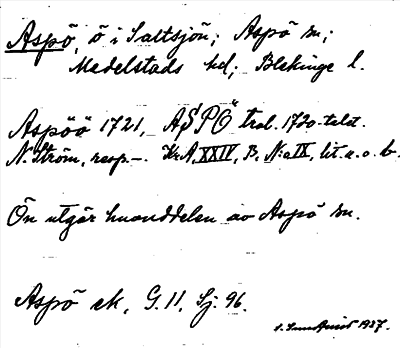 Aspö, ö i Saltsjön; Aspö sn;
Medelstads hd; Blekinge l.
Aspöö 1721, ASPÖ trol. 1720-talet.
N. Ström, resp. –. Kr. A, XXIV, B, N:o IX, lit. a. o. b.
Ön utgör huvuddelen av Aspö sn.
Aspö ek, G. 11, Sj. 96.
1937.